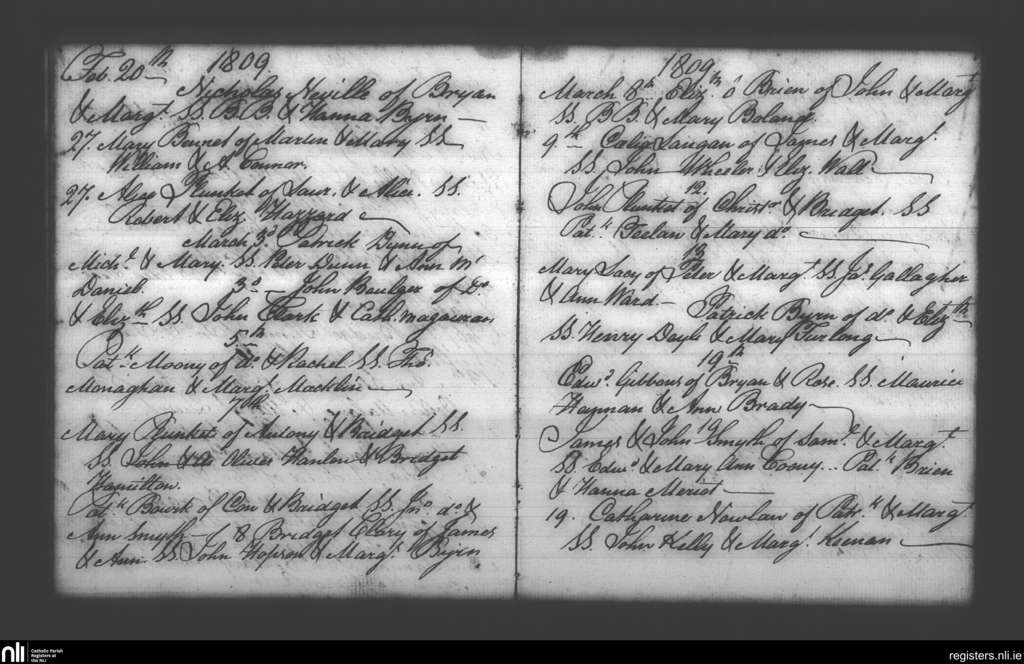 1809
Feb. 20th
Nicholas Neville of Bryan
& Margt. SS. B.B. & Hanna Byrn —
27. Mary Bennet of Martin & Mary SS
William & Connor.
27. Plunket of Laur. & SS.
Robert & Eliz. Hazzard
March 3d. Patrick Dunn of
Michl. & Mary. SS. Peter Dunn & Ann Mc
Daniel. 3d — John Boulger of Do.
& Elizth SS. John Clark & Cath. Magauran
5th
Patk Moony of do. & Rachel SS. Tho.
Monaghan & Margt. Macklin
7th
Mary Plunket of Antony & Bridget SS.
SS. John Hanlon & Bridget
Hamilton.
Patk Bourk of Con & Bridget SS. Jno. do. &
Ann Smyth — 8 Bridget Clery of James
& Ann. SS. John Hopson & Margt. Byrn
1809
March 8th. Elizth. o Brien of John & Margt
SS. B.B. & Mary Boland.
9th Langan of James & Margt.
SS. John Wheeler & Eliz. Wall
12.
John Plunket of Christr. & Bridget. SS
Patk. Feelan & Mary do.
13
Mary Lacy of Peter & Margt. SS. Jas. Gallagher
& Ann Ward —
Patrick Byrn of do. & Elizth
SS. Henry Doyle & Mary Furlong
19th
Edwd. Gibbons of Bryan & Rose. SS. Maurice
Hayman & Ann Brady
19
James & John Smyth of Saml. & Margt.
SS. Edwd. & Mary Ann .. Patk Brien
& Hanna
19. Catharine Nowlan of Patk. & Margt
SS. John Kelly & Margt. Keenan
nli
Catholic Parish
Registers at
the NLI
registers.nli.ie